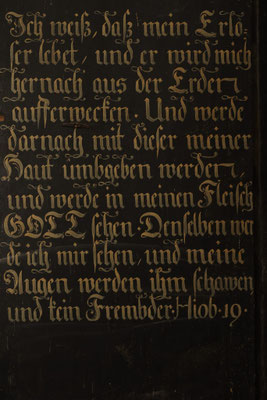 Ich weiß, daß mein Erlö⸗
ser lebet, und er wird mich
hernach aus der Erden
aufferwecken. Und werde
darnach mit dieser meiner
Haut umbgeben werden,
und werde in meinen Fleisch
GOTT sehen. Denselben wer
de ich mir sehen, und meine
Augen werden ihm schawen
und kein Frembder. Hiob. 19.